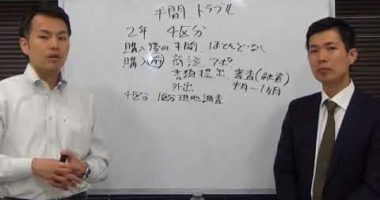 手間 トラブル
2年 4区分
購入後の手間 ほとんどない
購入前 商談 アポ
書類提出 審査(融資)
外出 半月〜1ヶ月
4区分 1区分現地調査